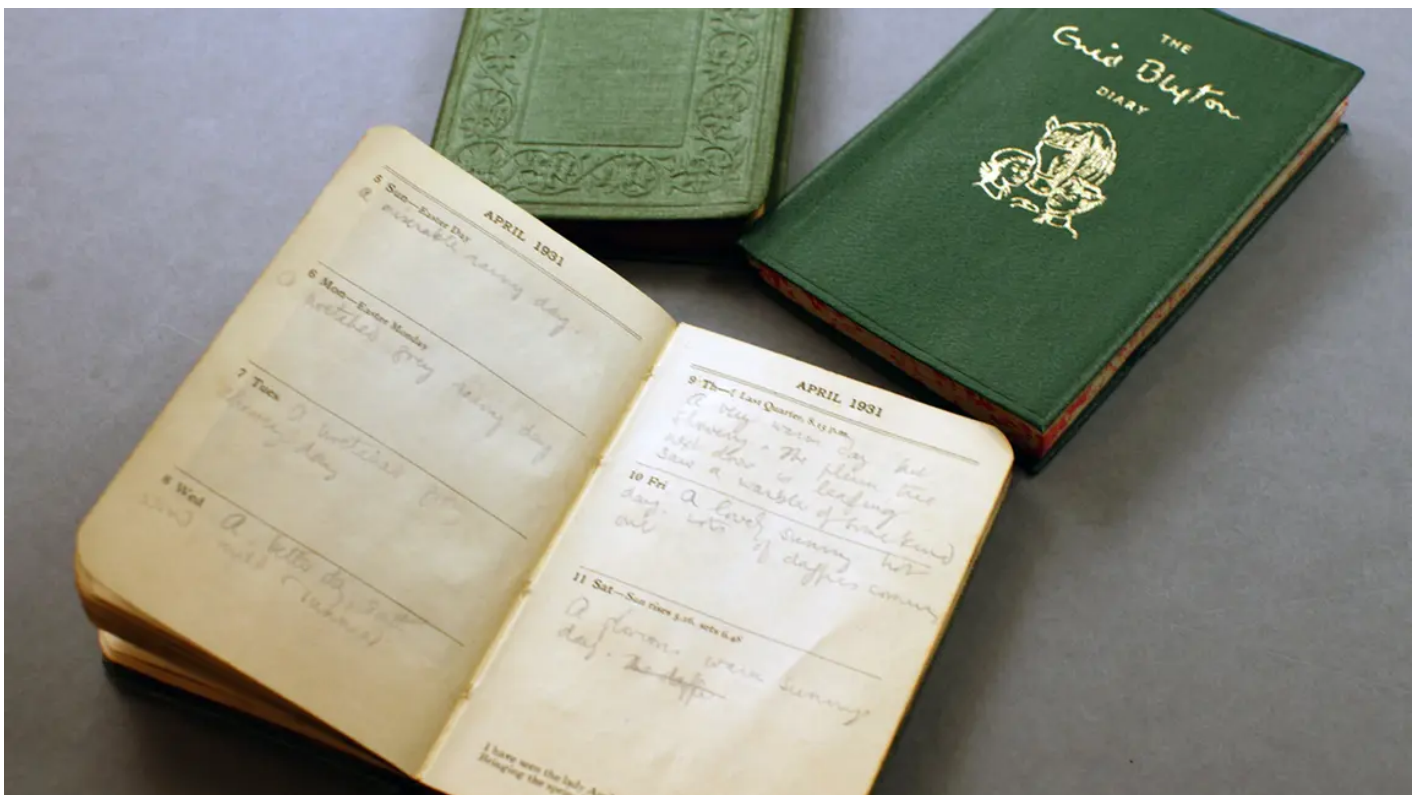 THE
Enid Blyton
DIARY
APRIL 1931
5 Sun—Easter Day
A miserable rainy day.
6 Mon—Easter Monday
A wretched grey rainy day
7 Tues A wretched grey
day
8 Wed A better day,
and
APRIL 1931
9 Th—☾ Last Quarter, 8.15 p.m.
A very warm day but
showery. The plum tree
next door is leafing
saw a warbler of some kind
10 Fri A lovely sunny hot
day. lots of daffies coming
out
11 Sat—Sun rises 5.16, sets 6.46
A warm sunny
day. The daffs
I have seen the lady April
Bringing the